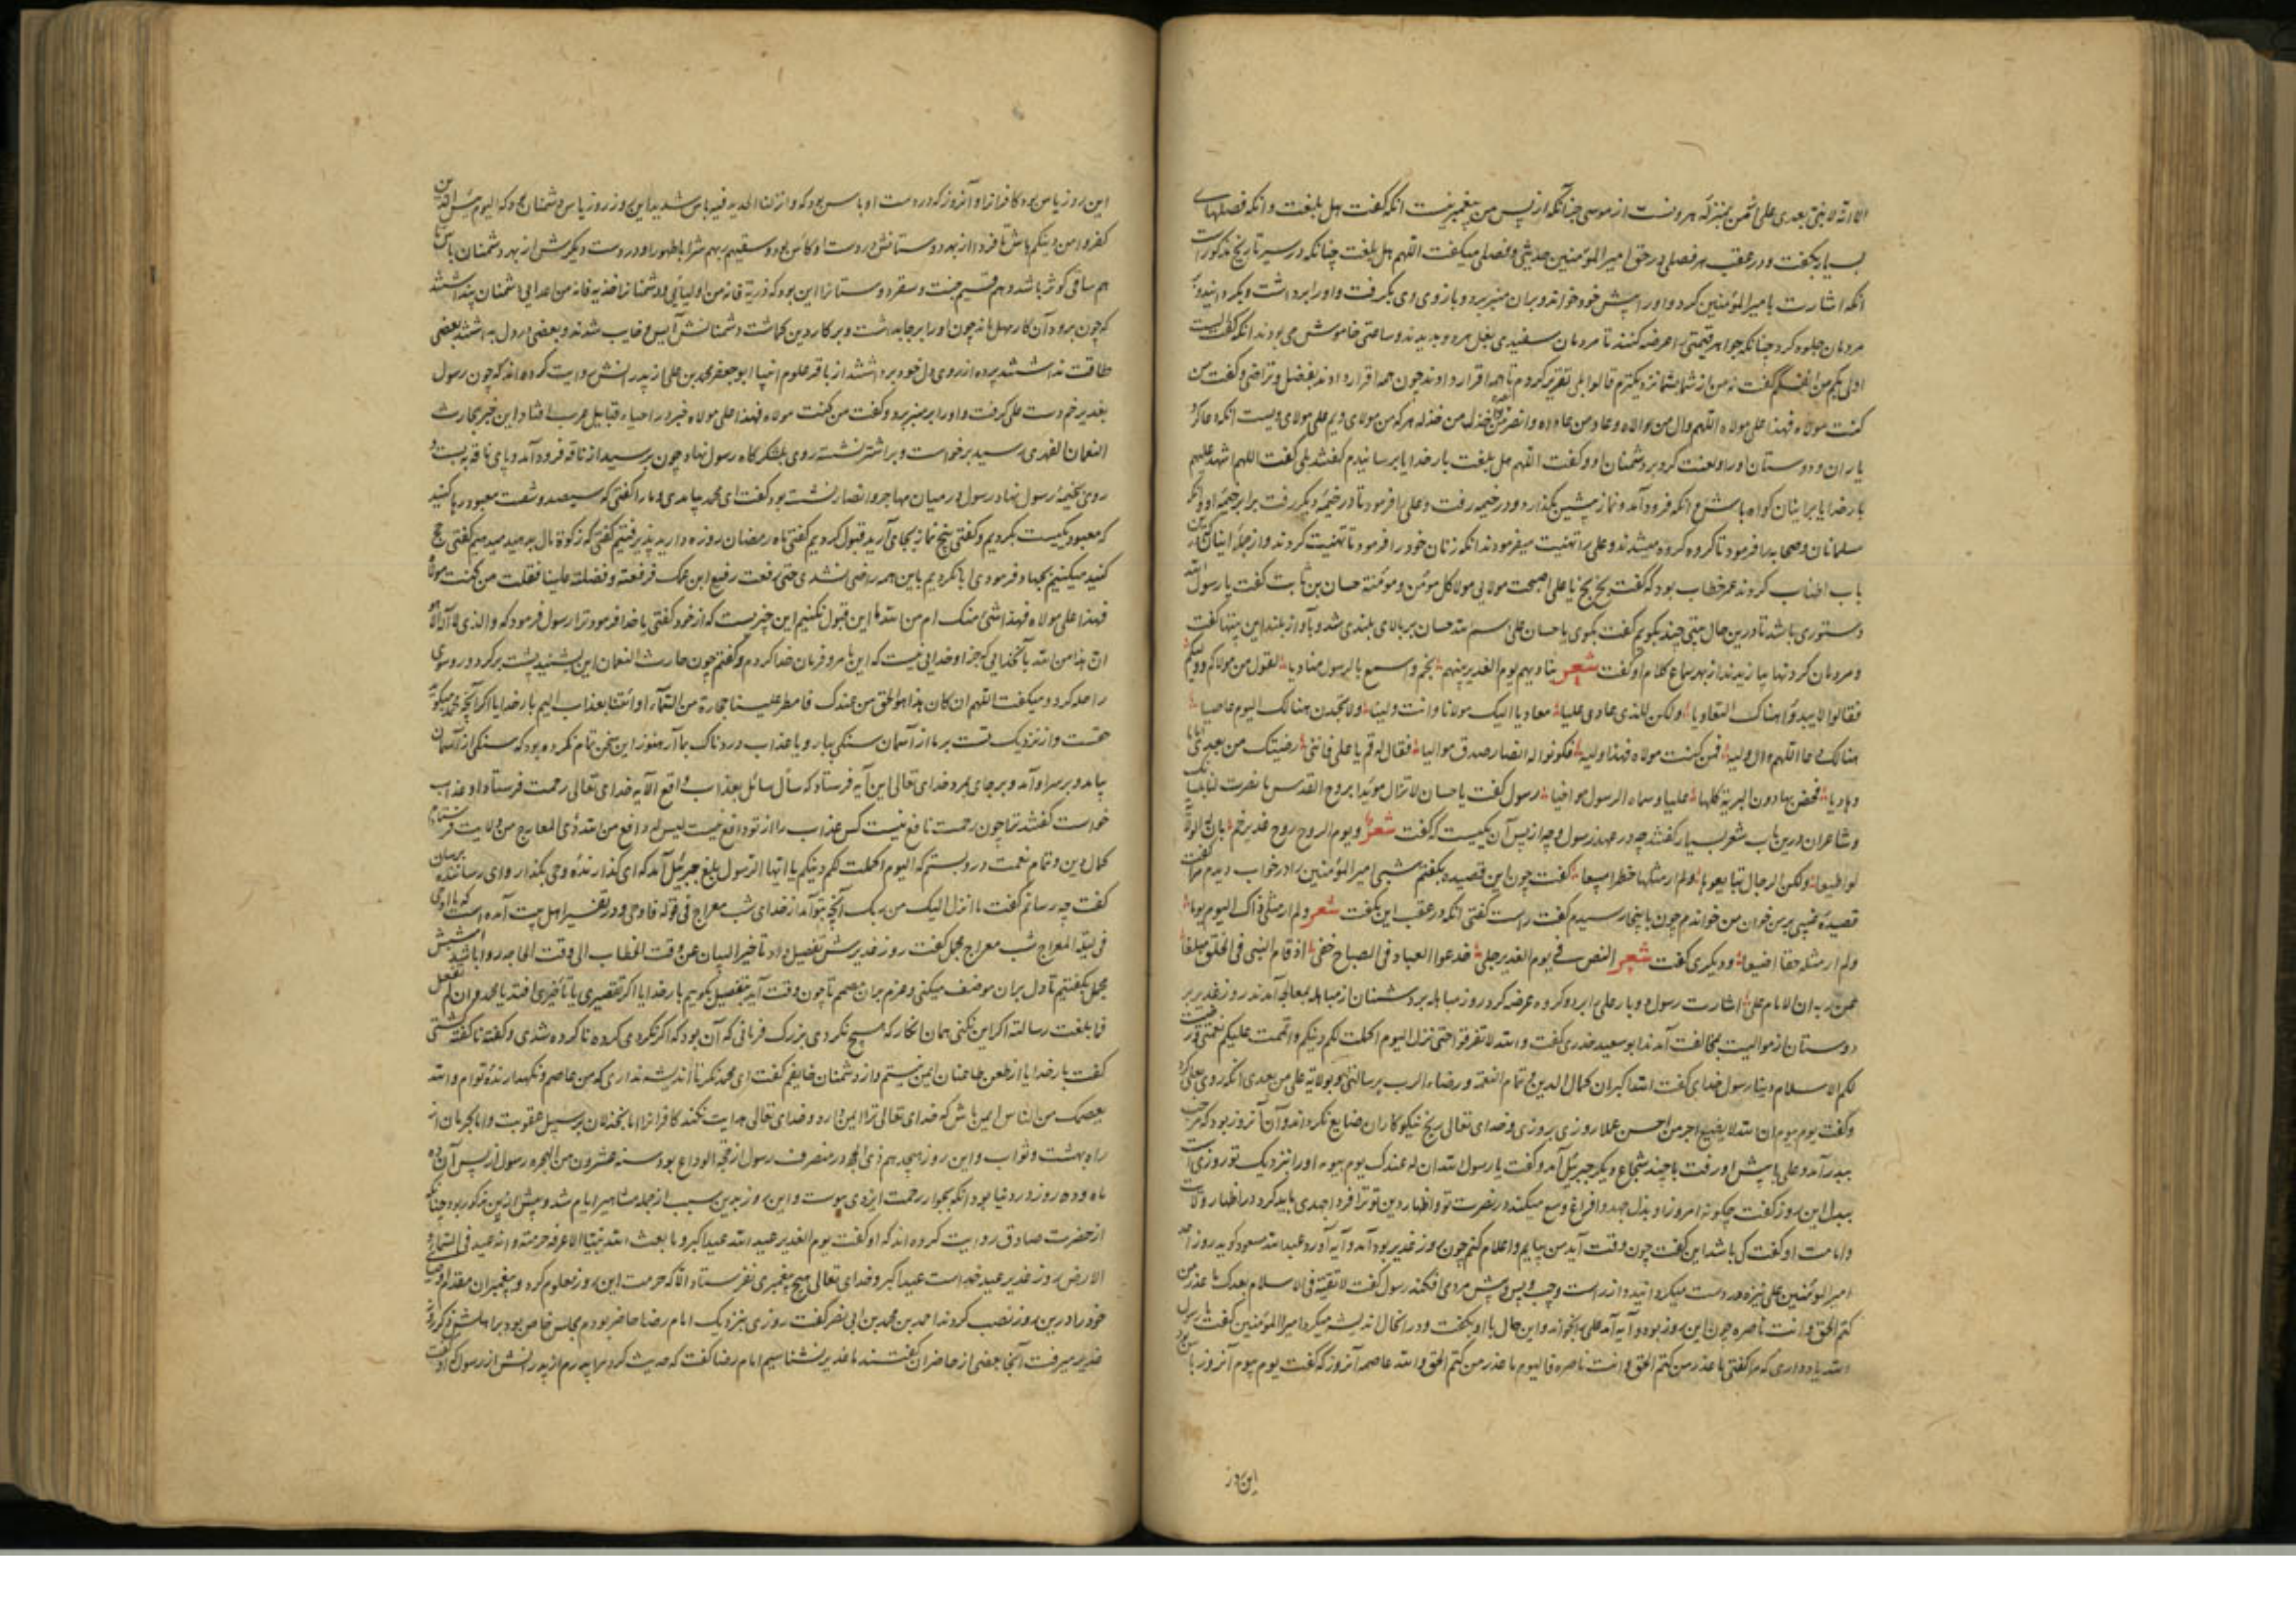 الا انه لا نبی بعدی علی از من بمنزله هرونست از موسی چنانکه از پس من پیغمبر نیست انکه گفت هل بلغت و انکه فصلهای
بسیار بگفت و در عقب هر فصلی در حق امیر المؤمنین حدیثی و فصلی میگفت اللهم هل بلغت چنانکه در سیر تاریخ مذکور است
انکه اشارت با میر المؤمنین کرد و او را پیش خود خواند و بران منبر برد و بازوی وی بگرفت و او را برداشت و بگردانید و
مردمان جلوه کرد چنانکه جواهر قیمتی را عرضه کنند تا مردمان سفیدی بغل هر دو بدیدند و ساعتی خاموش می بودند انکه گفت الست
اولی بکم من انفسکم گفت نه من از شما بشما نزدیکترم قالوا بلی تقریر کردم تا همه اقرار دادند چون همه اقرار دادند بفضل و تراضی و گفت من
کنت مولاه فهذا علی مولاه اللهم وال من والاه و عاد من عاداه و انصر من نصره و اخذل من خذله هر که من مولای ویم علی مولای ویست انکه دعا کرد
یاران و دوستان او را و لعنت کرد بر دشمنان او و گفت اللهم هل بلغت بار خدایا برسانیدم گفتند بلی گفت اللهم اشهد علیهم
بار خدایا بر اینان کواه باش انکه فرود آمد و نماز پیشین بگذارد و در خیمه رفت و علی را فرمود تا در خیمه دیگر رفت برابر خیمه او و انکه
مسلمانان و صحابه را فرمود تا کروه کروه میشدند و علی را تهنیت میفرمودند انکه زنان خود را فرمود تا تهنیت کردند و از جمله اینان که درین
باب اطناب کردند عمر خطاب بود که گفت بخ بخ یا علی اصبحت مولایی و مولا کل مؤمن و مؤمنة حسان بن ثابت گفت یا رسول الله
دستوری باشد تا درین حال بیتی چند بگویم گفت بگوی یا حسان علی اسم الله حسان بر بالای بلندی شد و بآواز بلند این بیتها گفت
و مردمان کردنها بیازیدند از بهر سماع کلام او گفت شعر ینادیهم یوم الغدیر نبیهم بخم و اسمع بالرسول منادیا یقول من مولاکم و ولیکم
فقالوا و لم یبدوا هناک التعادیا و لکن للذی عادی علیا معادیا الهک مولانا و انت ولینا و لا تجدن هنالک الیوم عاصیا
هنالک دعا اللهم وال ولیه فمن کنت مولاه فهذا ولیه فکونوا له انصار صدق موالیا فقال له قم یا علی فاننی رضیتک من بعدی اماما
و هادیا فخص بها دون البریة کلها علیا و سماه الرسول مواخیا رسول گفت یا حسان لا تزال مؤیدا بروح القدس ما نصرتنا بلسانک
و شاعران درین باب شعر بسیار گفتند چه در عهد رسول و چه از پس آن یکیست که گفت شعر و یوم الدوح دوح غدیر خم ابان له الولایة
لو اطیعا و لکن الرجال تبایعوها و لم ار مثلها خطرا مبیعا گفت چون این قصیده بگفتم شبی امیر المؤمنین را در خواب دیدم مرا گفت
قصیده عینیه بر من خوان من خواندم چون باینجا رسیدم گفت راست گفتی انکه در عقب این بگفت شعر و لم ار مثل ذاک الیوم یوما
و لم ار مثله حقا اضیعا و دیگری گفت شعر النص فی یوم الغدیر جلی قد عو العباد فی الصباح خفی اذ قام النبی فی الخلق مبلغا
عن ربه ان الامام علی اشارت رسول دو بار علی را برد و کروه عرضه کرد روز مباهله بر دشمنان از مباهله بمعالجه آمدند روز غدیر بر
دوستان از موالیت بمخالفت آمدند ابو سعید خدری گفت و الله لا تفرقوا حتی نزل الیوم اکملت لکم دینکم و اتممت علیکم نعمتی و رضیت
لکم الاسلام دینا رسول خدای گفت الله اکبر ان کمال الدین و تمام النعمة و رضاء الرب برسالتی و بولایة علی من بعدی انکه روی بعلی کرد
و گفت یوم بیوم ان الله لا یضیع اجر من احسن عملا روزی بروزی و خدای تعالی رنج نیکوکاران ضایع نکرداند و آن آنروز بود که مرحب
بیدر آمد و علی پیش او رفت با چند شجاع دیگر جبرئیل آمد و گفت یا رسول الله ان له عندک یوم بیوم او را بنزدیک تو روزی است
ببدل این روز گفت چگونه امروز او بذل جهد و افراغ وسع میکند در نصرت تو و اظهار دین تو ترا فردا جهدی باید کرد در اظهار ولایت
و امامت او گفت کی باشد این گفت چون وقت آید من بیایم و اعلام کنم چون روز غدیر بود آمد و آیه آورد عبد الله مسعود گوید روز احد
امیر المؤمنین علی نیزه در دست میگردانید و از راست و چپ و پس و پیش مردی افکند رسول گفت لا تقیة فی الاسلام بعدک ما عذر من
کتم الحق و انت ناصره چون این روز بود و آیه آمد علی را بخواند و این حال با او بگفت و در انحال اندیشه میکرد امیر المؤمنین گفت یا رسول
الله یاد داری که مرا گفتی ما عذر من کتم الحق و انت ناصره فالیوم ما عذر من کتم الحق و الله عاصمه آنروز که گفت یوم بیوم آنروز باس بود
این روز
این روز یاس بود کافرانرا و آنروز که در دست او باس بود که و انزلنا الحدید فیه باس شدید این روز روز یاس دشمنان بود که الیوم یئس الذین
کفروا من دینکم باش تا فردا از بهر دوستانش در دست او کاس بود و سقیهم ربهم شرابا طهورا و در دست دیگرش از بهر دشمنان باس تا
هم ساقی کوثر باشد و هم قسیم جنت و سقر دوستانرا این بود که ذریه فانه من اولیائی و دشمنانرا خذیه فانه من اعدایی دشمنان پنداشتند
که چون برود آن کار مهمل ماند چون او را بر جا بداشت و بر کار دین کماشت دشمنانش آیس و خایب شدند و بعضی در دل بداشتند بعضی
طاقت نداشتند پرده از روی دل خود برداشتند از باقر علوم انبیا ابو جعفر محمد بن علی از پدرانش روایت کرده اند که چون رسول
بغدیر خم دست علی گرفت و او را بر منبر برد و گفت من کنت مولاه فهذا علی مولاه خبر در احیاء قبایل عرب افتاد این خبر بحارث
النعمان الفهری رسید برخواست و بر اشتر نشسته روی بلشکر کاه رسول نهاد چون برسید از ناقه فرود آمد و پای ناقه ببست و
روی بخیمه رسول نهاد رسول در میان مهاجر و انصار نشسته بود گفت ای محمد بیامدی و ما را گفتی که سیصد و شصت معبود رها کنید
که معبود یکیست بکردیم و گفتی پنج نماز بجای آرید قبول کردیم گفتی ماه رمضان روزه دارید پذیرفتیم گفتی که زکوة مال بدهید میدهیم گفتی حج
کنید میکنیم بجهاد فرمودی ابا نکردیم باین همه راضی نشدی حتی رفعت رفیع ابن عمک فرفعته و فضلته علینا فقلت من کنت مولاه
فهذا علی مولاه فهذا شیء منک ام من الله ما این قبول نکنیم این چیزیست که از خود گفتی یا خدا فرمود ترا رسول فرمود که و الذی لا اله الا هو
ان هذا من الله بآنخدایی که جز او خدایی نیست که این بامر و فرمان خدا کردم و گفتم چون حارث النعمان این بشنید پشت برکرد و روسوی
راحله کرد و میگفت اللهم ان کان هذا هو الحق من عندک فامطر علینا حجارة من السماء او ائتنا بعذاب الیم بار خدایا اگر آنچه محمد میگوید
حقست و از نزدیک تست بر ما از آسمان سنگی ببار و یا عذاب دردناک بما آر هنوز این سخن تمام نکرده بود که سنگی از آسمان
بیامد و بر سر او آمد و بر جای بمرد خدای تعالی این آیه فرستاد که سأل سائل بعذاب واقع الآیه خدای تعالی رحمت فرستاد او عذاب
خواست گفتند ترا چون رحمت نافع نیست کس عذاب را از تو دافع نیست لیس له دافع من الله ذی المعارج من ولایت فرستادم
کمال دین و تمام نعمت در و بستم که الیوم اکملت لکم دینکم یا ایها الرسول بلغ جبرئیل آمد که ای گذارنده وحی بگذار و ای رساننده برسان
گفت چه رسانم گفت ما انزل الیک من ربک آنچه بتو آمد از خدای شب معراج فی قوله فاوحی و در تفسیر اهل بیت آمده است که ما اوحی
فی لیلة المعراج شب معراج مجمل گفت روز غدیرش تفصیل داد تا خیر البیان عن وقت الخطاب الی وقت الحاجه روا باشد امشبش
مجمل بگفتیم تا دل بران موضف میکنی و عزم بران مصمم تا چون وقت آید بتفصیل بگوییم بار خدایا اگر تقصیری یا تأخیری افتد یا محمد و ان لم تفعل
فما بلغت رسالته اگر این نکنی همان انکار که هیچ نکردی بزرگ فرمانی که آن بود که اگر نکردی کرده ناکرده شدی و گفته ناگفته گشتی
گفت بار خدایا از طعن طاعنان ایمن نیستم و از دشمنان خایفم گفت ای محمد نکر تا اندیشه نداری که من عاصم و نکهدارنده توام و الله
یعصمک من الناس ایمن باش که خدای تعالی ترا ایمن دارد و خدای تعالی هدایت نکند کافرانرا اما بخذلان بر سبیل عقوبت و اما بحرمان از
راه بهشت و ثواب و این روز هیجدهم ذی الحجه در منصرف رسول از حجة الوداع بود سنه عشرون من الهجره رسول از پس آن دو
ماه و ده روز در دنیا بود انکه بجوار رحمت ایزدی پیوست و این روز بدین سبب از جمله مشاهیر ایام شد و پیش ازین مذکور بود چنانکه
از حضرت صادق روایت کرده اند که او گفت یوم الغدیر عید الله عید اکبر و ما بعث الله نبیا الا عرفه حرمته و انه عید فی السماء و
الارض روز غدیر عید خداست عید اکبر و خدای تعالی هیچ پیغمبری نفرستاد الا که حرمت این روز معلوم کرد و پیغمبران مقدم اوصیای
خود را درین روز نصب کردند احمد بن محمد بن ابی نصر گفت روزی بنزدیک امام رضا حاضر بودم مجلس خاص بود براهلش ذکر روز
غدیر میرفت آنجا بعضی از حاضران گفتند ما غدیر نشناسیم امام رضا گفت که حدیث کرد مرا پدرم از پدرانش از رسول که او گفت